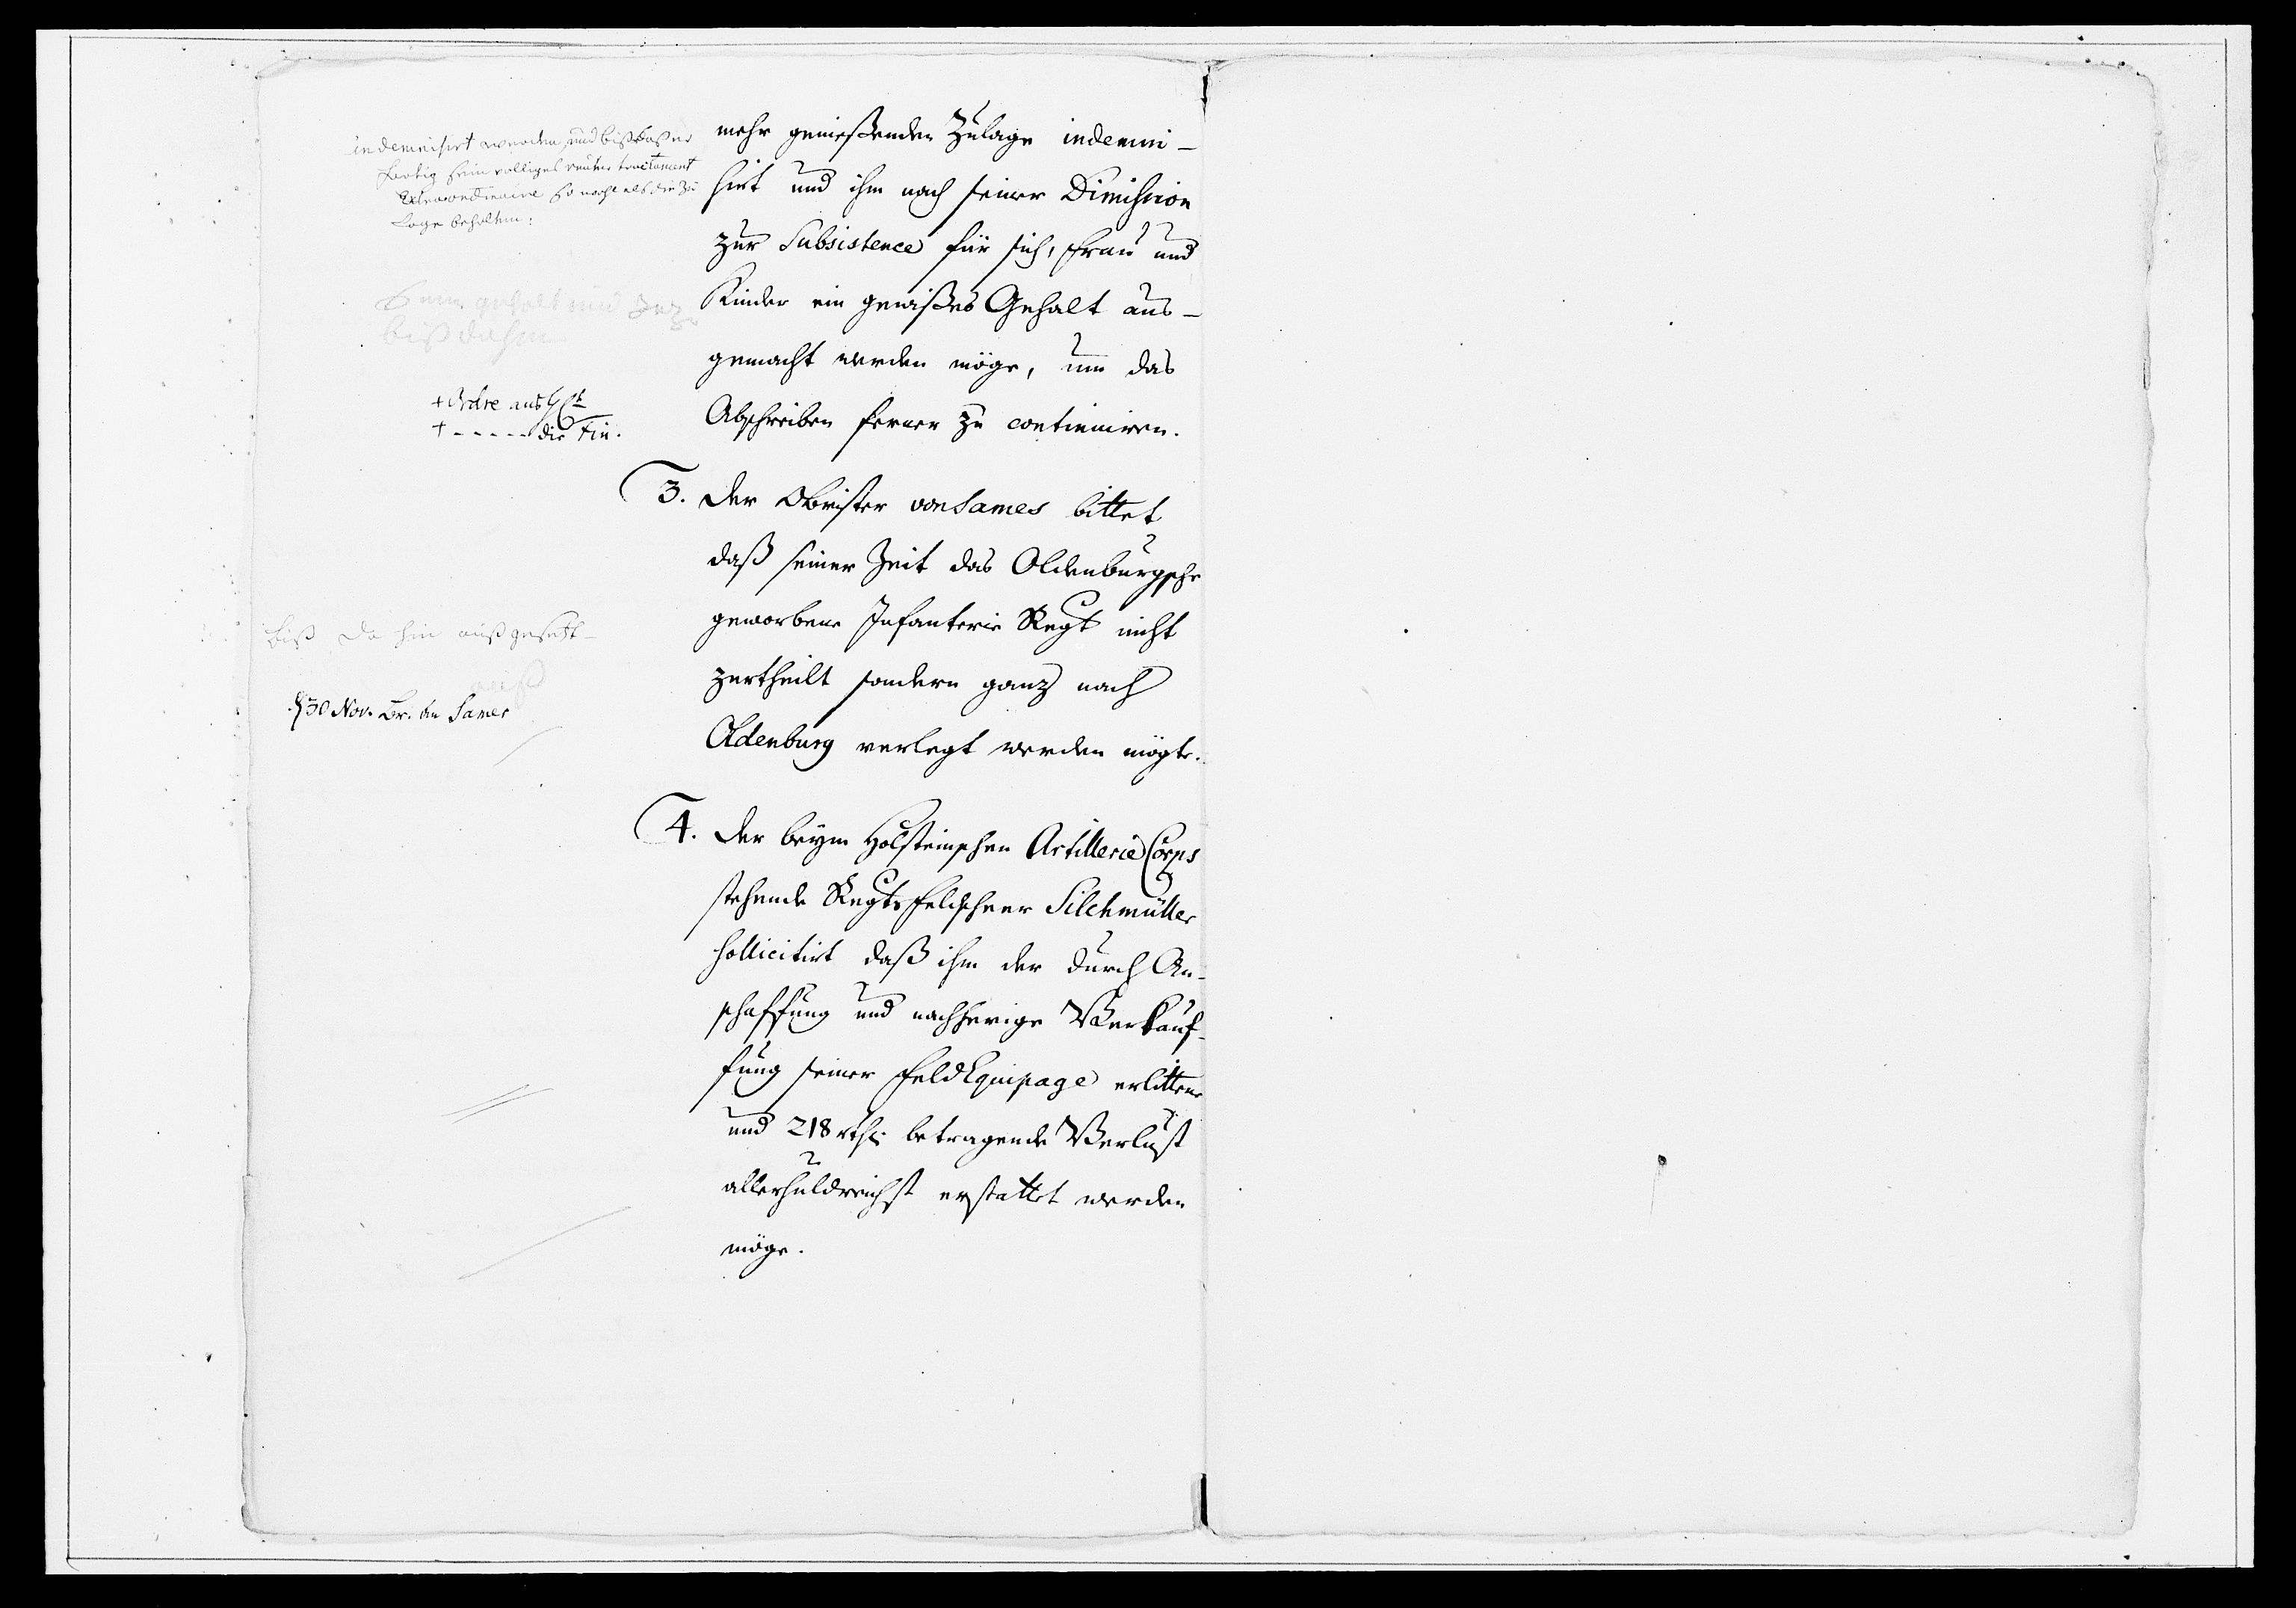 indemnisirt werden, und biß daß er
fertig sein völliges tractament
Extraordinaire so wohl als die Zu
lage behalten:
gehalt und
biß dahin
+ Ordre ans GCt
+ - - - - - die Fin.
biß da hin auß gesetzt
30 Nov. Br. an Sames
mehr genießenden Zulage indemni-
sirt und ihm nach seiner Dimission
zur Subsistence für sich, Frau und
Kinder ein gewißes Gehalt aus-
gemacht werden möge, um das
Abschreiben ferner zu continuiren.
3. Der Obrister von Sames bittet
daß seiner Zeit das Oldenburgsche
geworbene Infanterie Regt nicht
zertheilt sondern ganz nach
Oldenburg verlegt werden mögte.
4. Der beym Holsteinschen Artillerie Corps
stehende Regts Feldscheer Silchmüller
sollicitirt daß ihm der durch An-
schaffung und nachherige Verkauf-
fung seiner Feld Equipage erlittene
und 218 rthl. betragende Verlust
allerhuldreichst erstattet werden
möge.